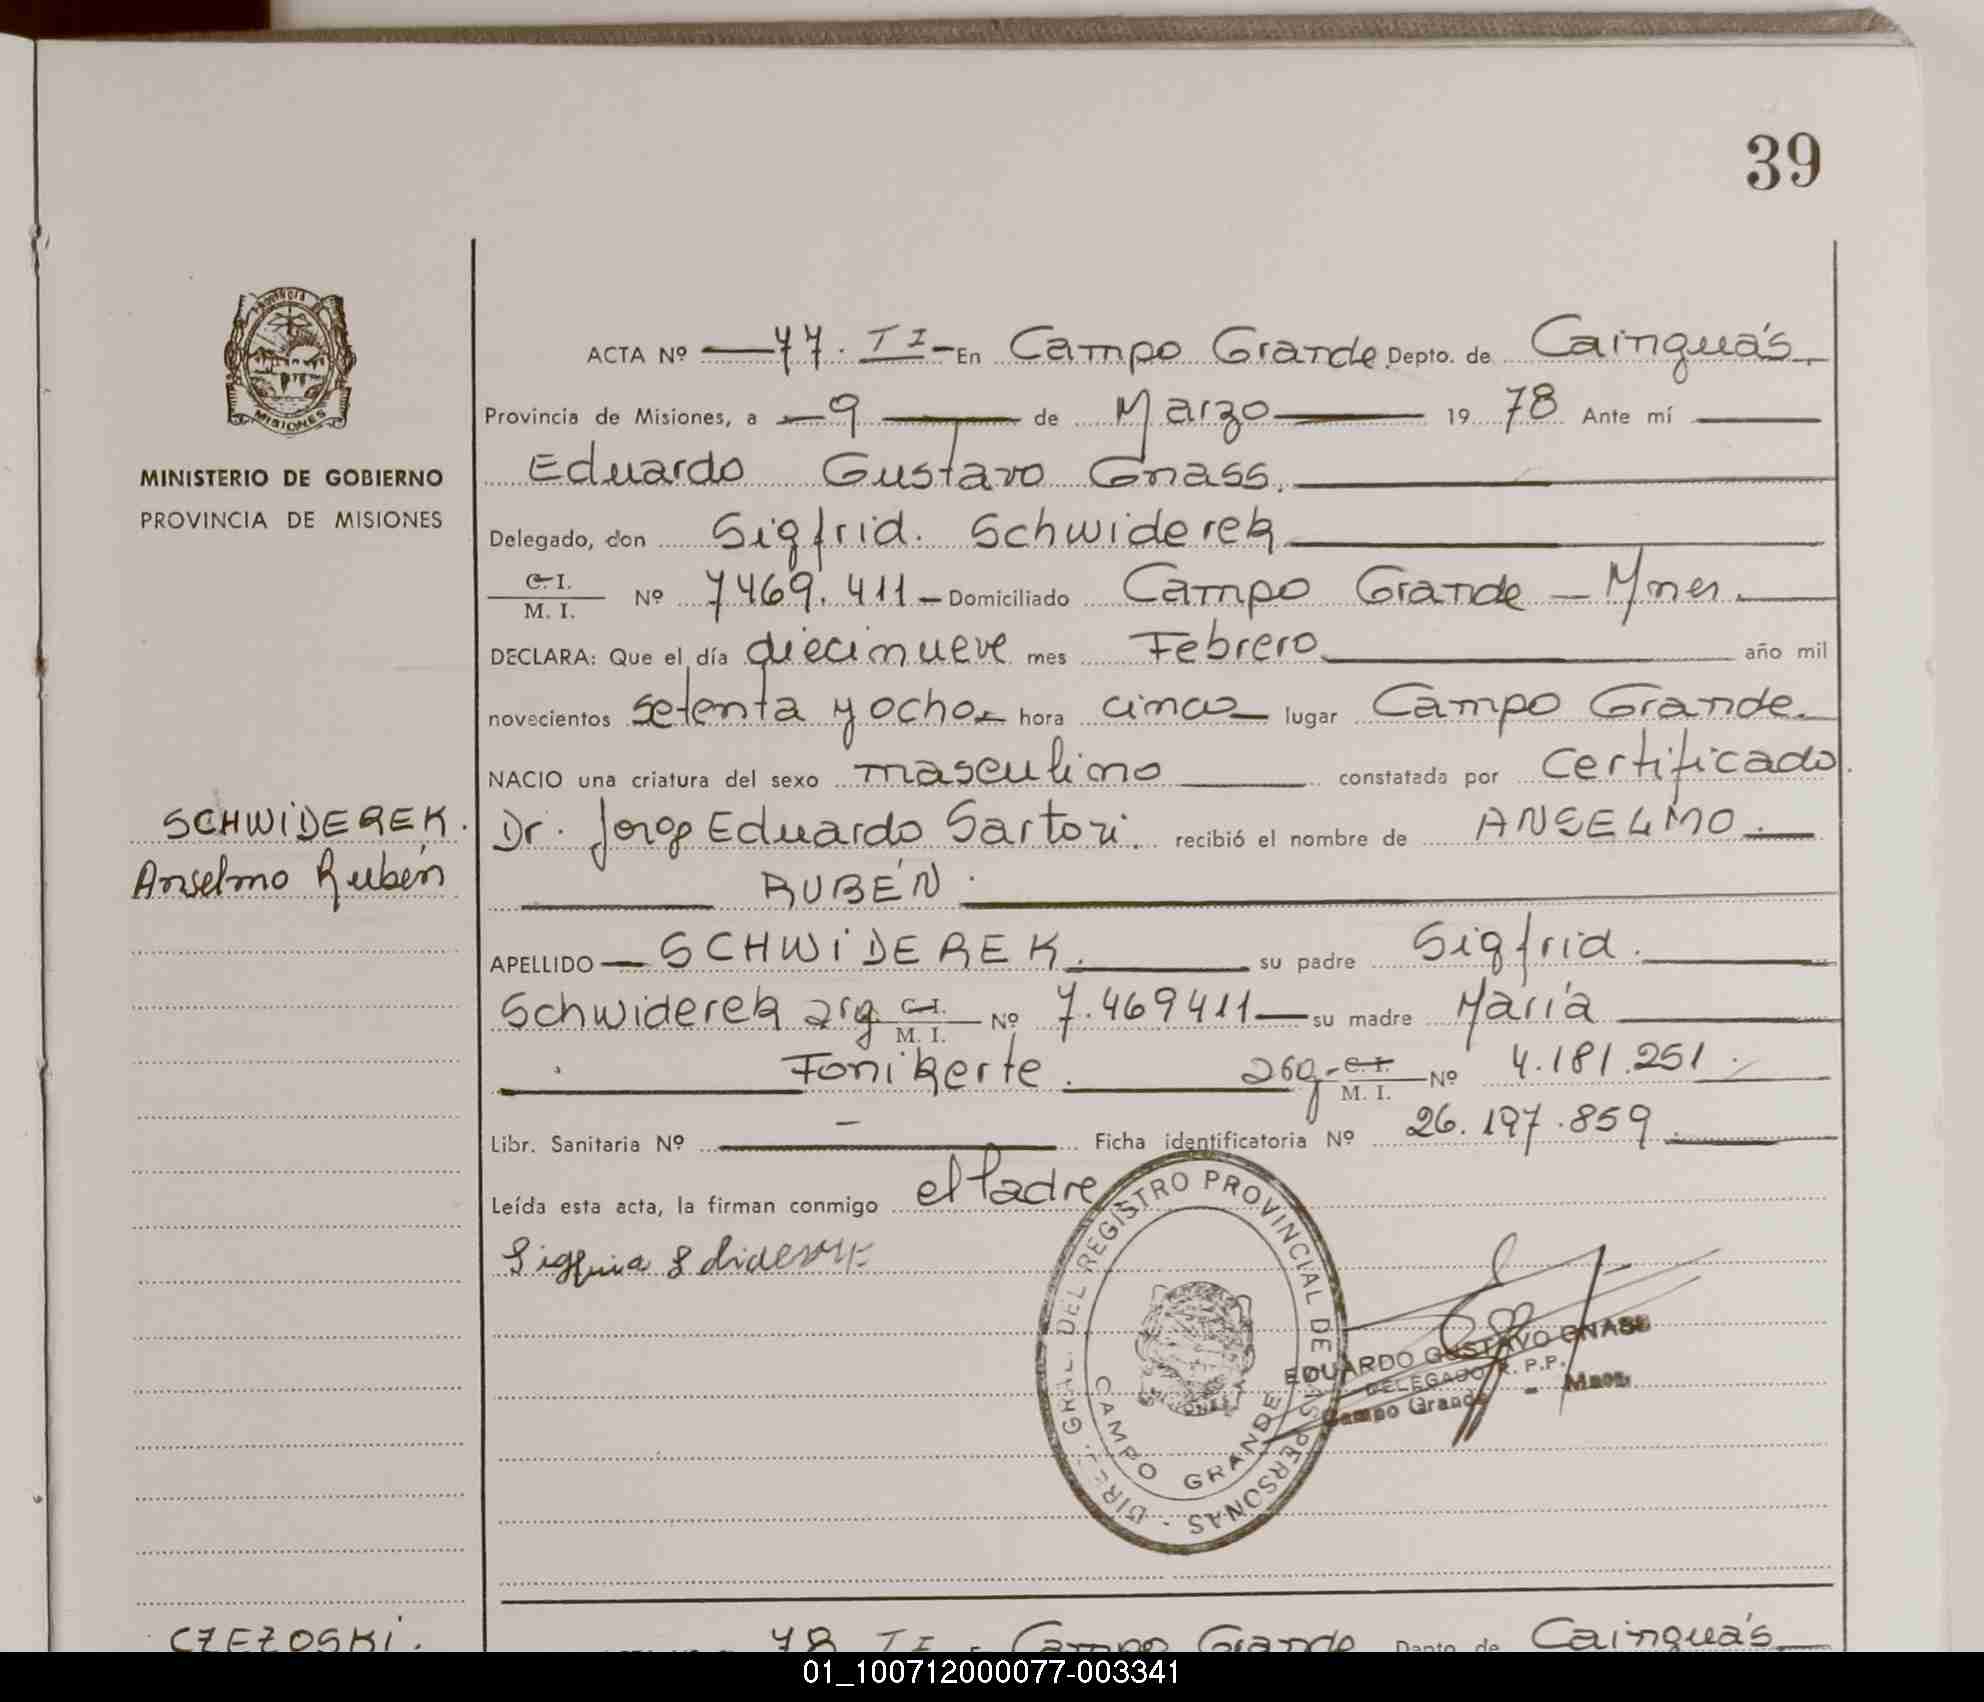 39
MINISTERIO DE GOBIERNO
PROVINCIA DE MISIONES
SCHWIDEREK.
Anselmo Rubén
ACTA Nº 77. TI - En Campo Grande. Depto. de Cainguás.
Provincia de Misiones, a 9 de Marzo 1978 Ante mí
Eduardo Gustavo Gnass.
Delegado, don Sigfrid. Schwiderek
C. I. / M. I. Nº 7469.411 - Domiciliado Campo Grande - Mnes.
DECLARA: Que el día diecinueve mes Febrero año mil
novecientos setenta y ocho. hora cinco lugar Campo Grande.
NACIO una criatura del sexo masculino constatada por Certificado.
Dr. Jorge Eduardo Sartori. recibió el nombre de ANSELMO.
RUBÉN.
APELLIDO SCHWIDEREK. su padre Sigfrid.
Schwiderek arg C. I. / M. I. Nº 7.469411 su madre María
Fonikerte. arg. C. I. / M. I. Nº 4.181.251.
Libr. Sanitaria Nº - Ficha identificatoria Nº 26.197.859.
Leída esta acta, la firman conmigo el Padre
DIR. GRAL. DEL REGISTRO PROVINCIAL DE LAS PERSONAS
CAMPO GRANDE
EDUARDO GUSTAVO GNASS
DELEGADO R. P.P.
Campo Grande - Mnes.
CZEZOSKI.
78 TI - Campo Grande Depto. de Cainguás
01_100712000077-003341